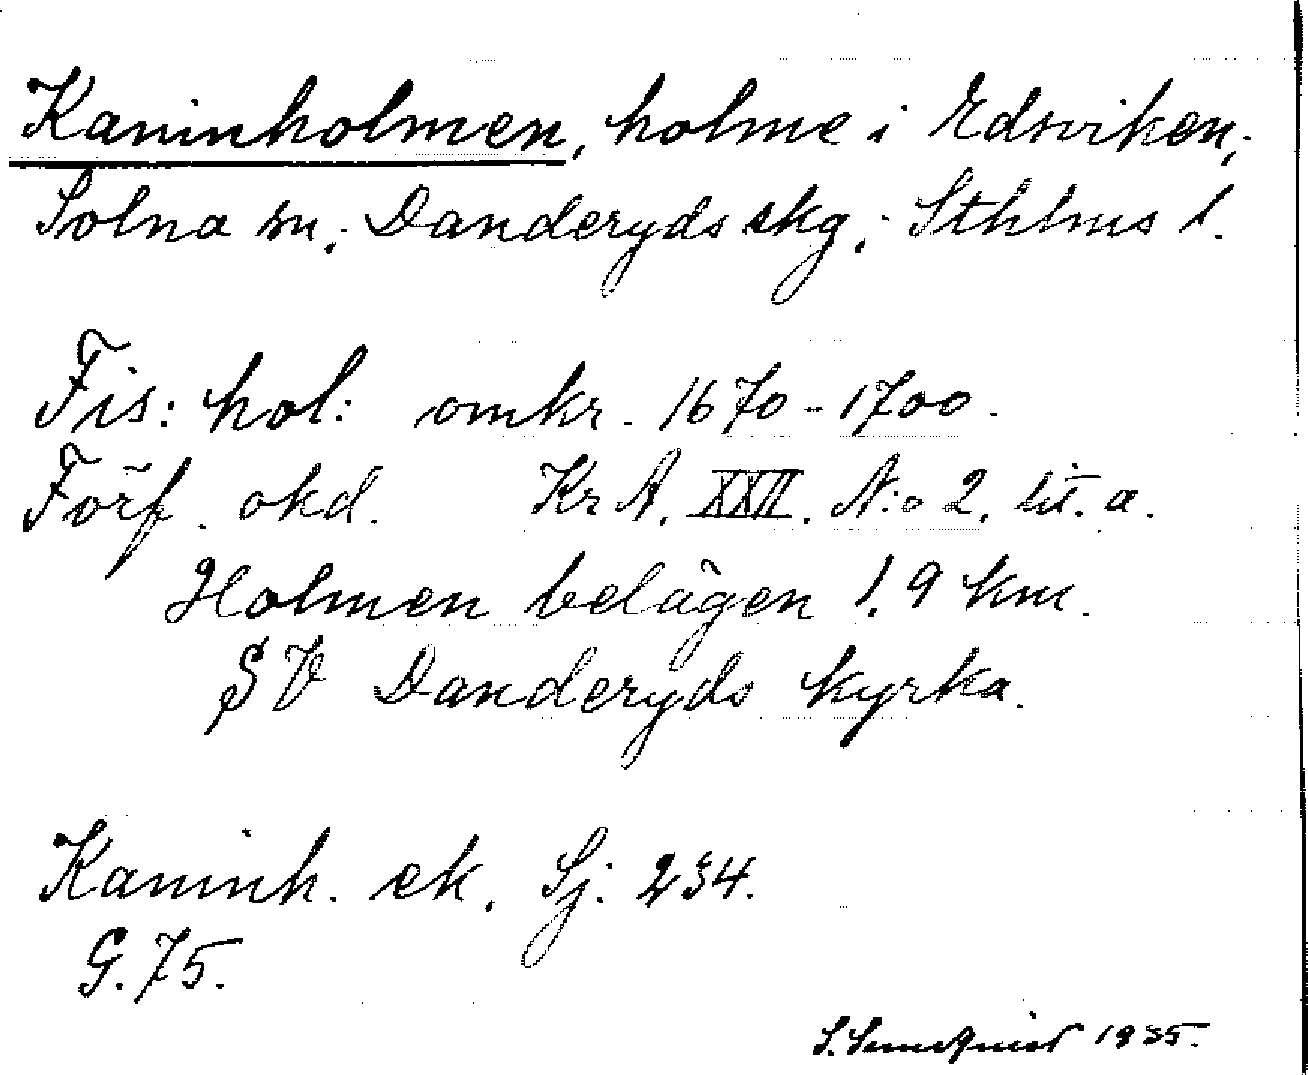 Kaninholmen, holme i Edsviken,
Solna sn, Danderyds skg, Sthlms l.
Fis: hol: omkr. 1670-1700.
Förf. okd. Kr A. XXII. N:o 2. lit. a.
Holmen belägen 1,9 km.
SV Danderyds kyrka.
Kaninh. ek. Sj. 234.
G. 75.
S. Sundquist 1935.